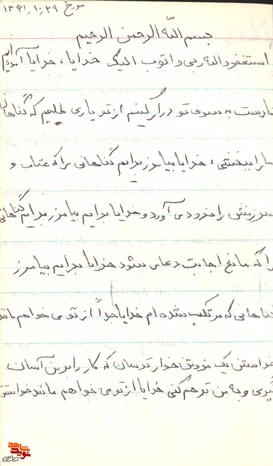 مورخ ۱۳۶۱/۱۰/۲۹
بسم الله الرحمن الرحیم
استغفر الله ربی و اتوب الیک خدایا، خدایا آمدیم
دست به سوی تو دراز کنیم از تو یاری طلبیم که گناهان
مارا ببخشی، خدایا بیامرز برایم گناهانی را که عتاب و
سرزنش را فرود می آورد و خدایا برایم بیامرز برایم گناهانی
را که مانع اجابت دعا می شود خدایا برایم بیامرز
گناهانی که مرتکب شده ام خدایا از تو می خواهم مانند
خواستن یک فروتن خوار ترسان که کار را بر من آسان
گیری و به من ترحم کنی خدایا از تو می خواهم مانند خواستن